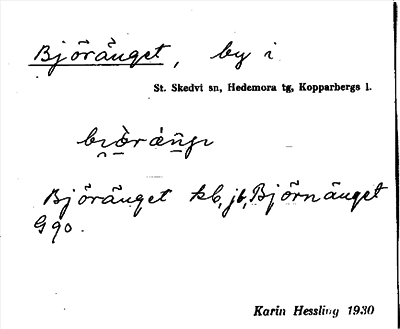 Björänget, by i
St. Skedvi sn, Hedemora tg, Kopparbergs l.
Björänget kb, jb, Björnänget
G 90.
Karin Hessling 1930